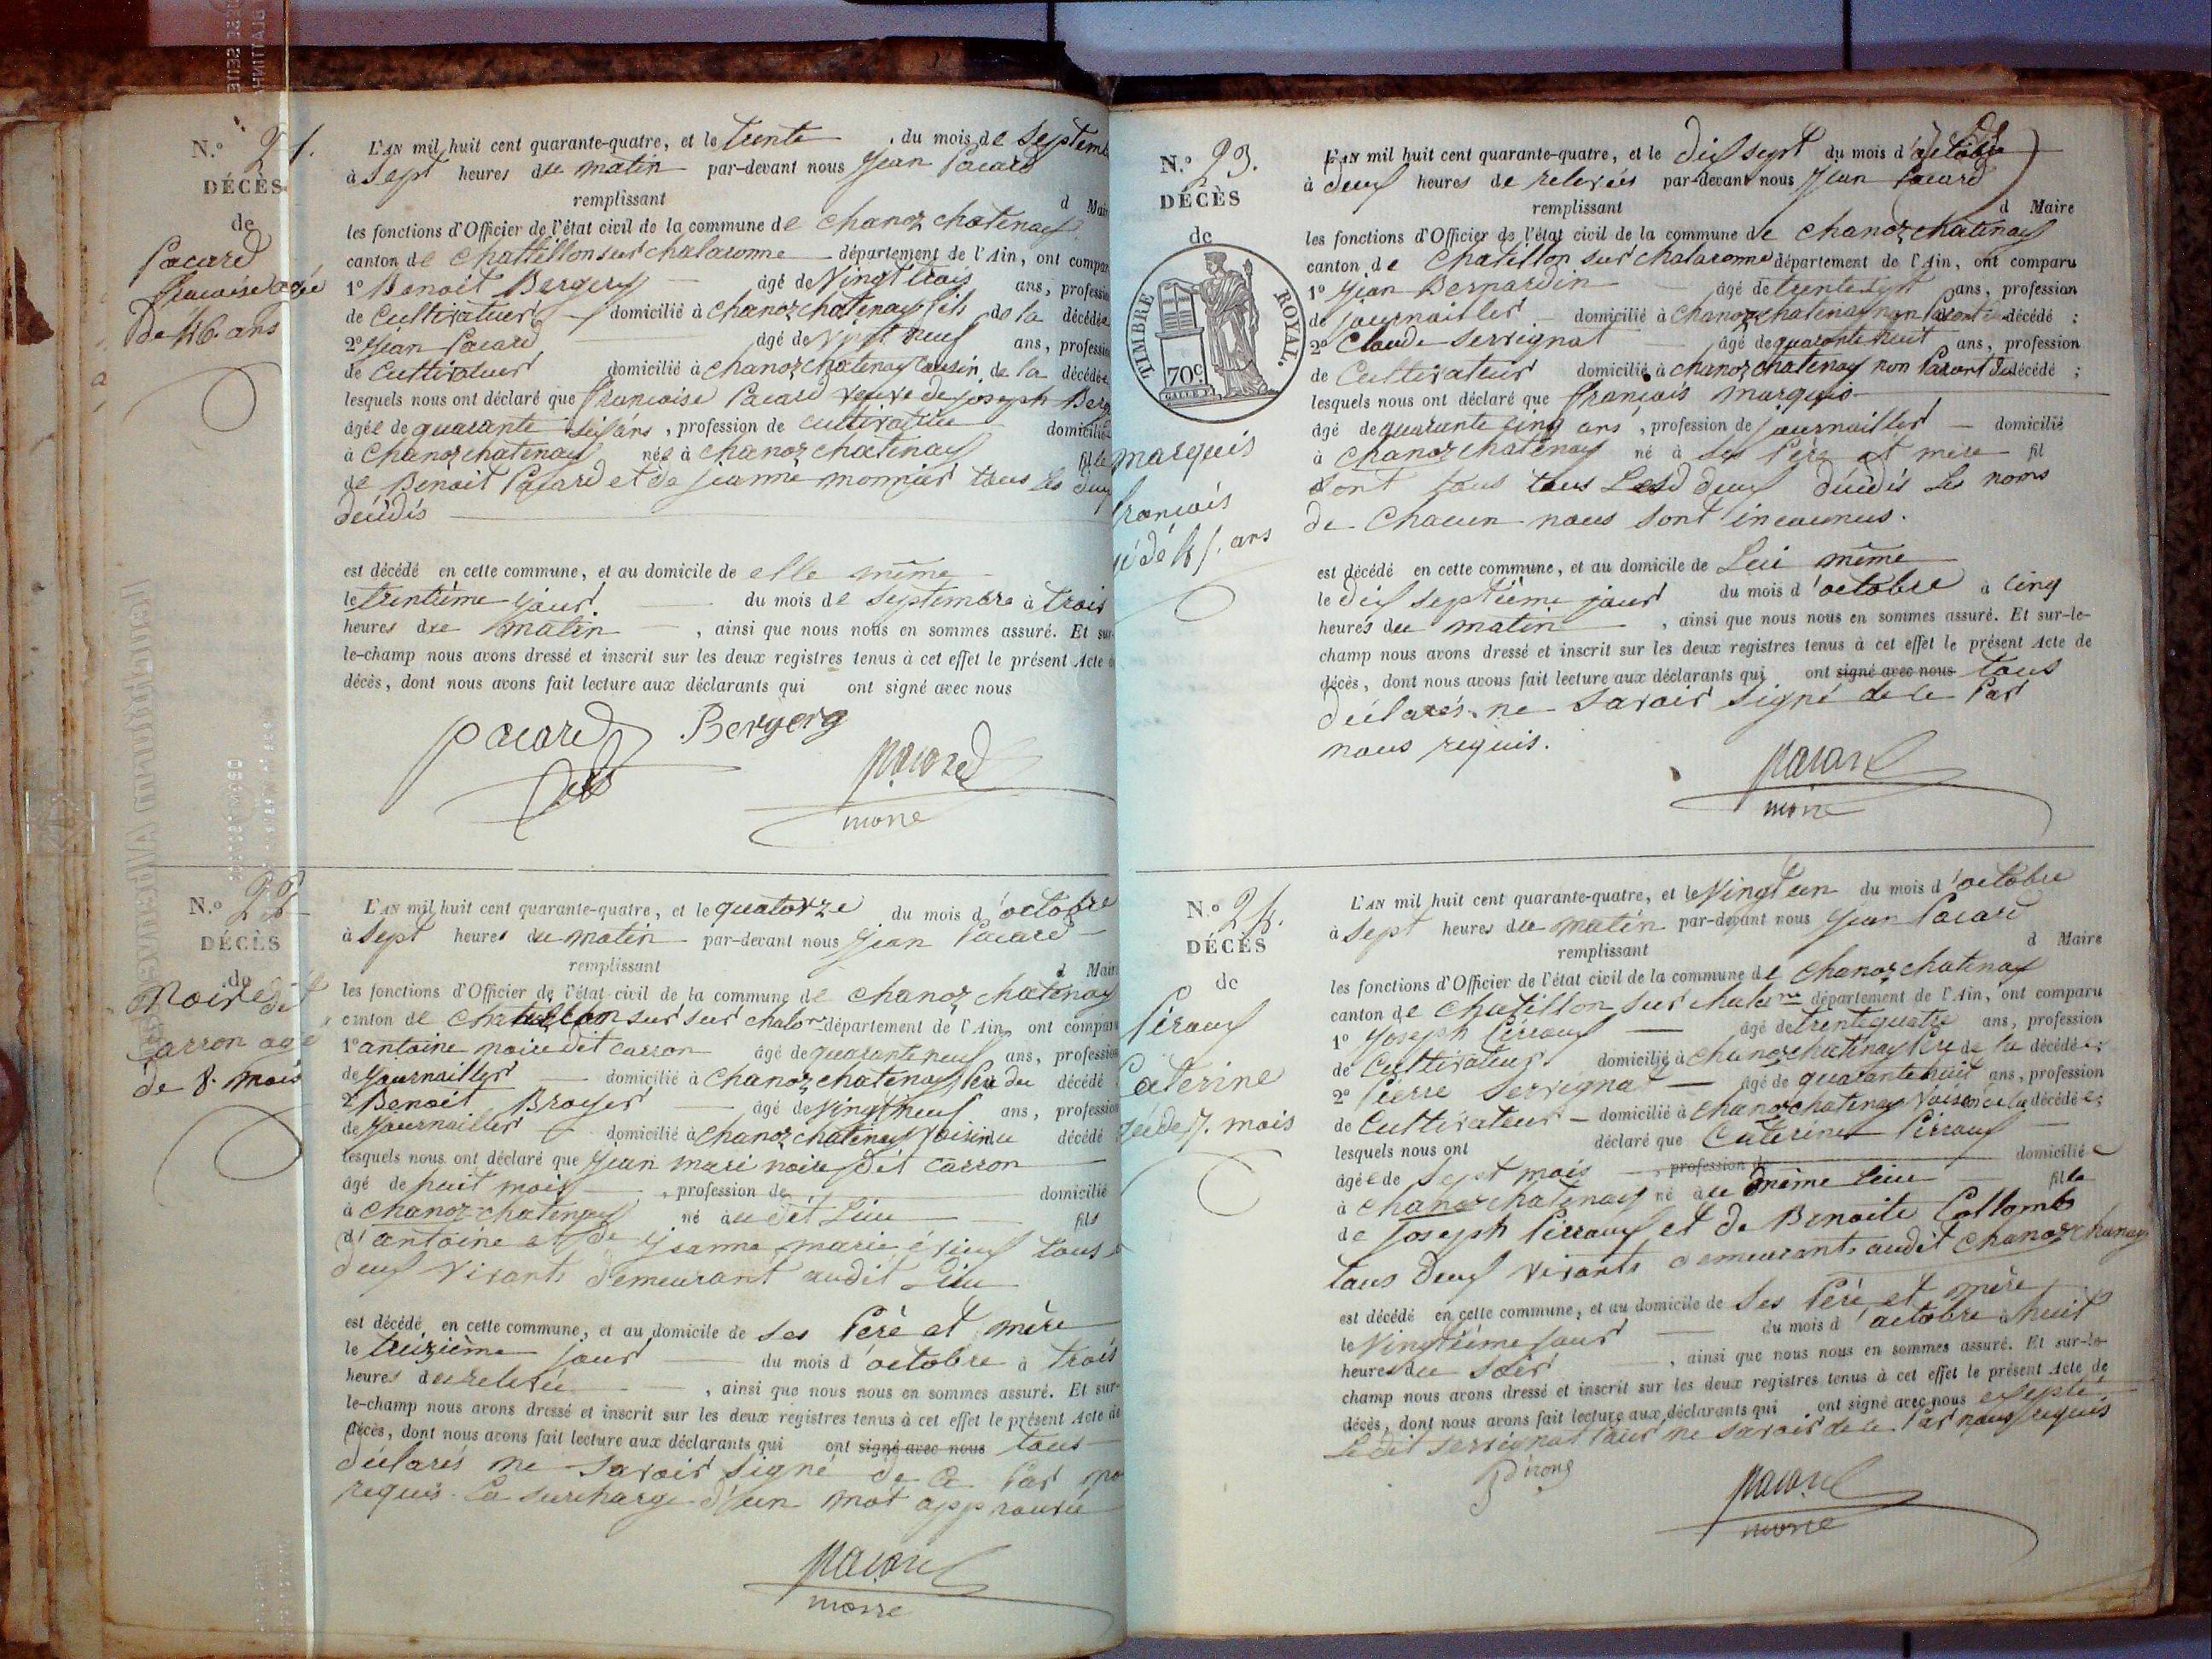 N.º 21.
DÉCÈS
de
Pacard
françoise agée
de 46 ans
L'AN mil huit cent quarante-quatre, et le trente du mois de Septemb
à Sept heures du matin par-devant nous Jean Pacard
remplissant d Mair
les fonctions d'Officier de l'état civil de la commune de chanoz chatenay
canton de Chattillon sur chalaronne département de l'Ain, ont compar
1º Benoit Bergery âgé de Vingt trois ans, professio
de Cultivateur domicilié à chanoz chatenay fils de la décédée
2º Jean Pacard âgé de Vingt neuf ans, professio
de Cultivateur domicilié à chanoz chatenay Cousin de la décédée
lesquels nous ont déclaré que françoise Pacard veuve de joseph Berg
âgée de quarante six ans, profession de cultivatrice domicilié
à Chanoz chatenay née à chanoz chatenay fille
de Benoit Pacard et de jeanne monnier tous les deux
décédés
est décédé en cette commune, et au domicile de elle même
le trentième jour du mois de Septembre à trois
heures du matin, ainsi que nous nous en sommes assuré. Et sur-
le-champ nous avons dressé et inscrit sur les deux registres tenus à cet effet le présent Acte d
décès, dont nous avons fait lecture aux déclarants qui ont signé avec nous
pacard Bergerg
pacard
maire
N.º 22
DÉCÈS
de
Noire dit
Carron agé
de 8. mois
L'AN mil huit cent quarante-quatre, et le quatorze du mois d'octobre
à Sept heures du matin par-devant nous Jean Pacard
remplissant d Maire
les fonctions d'Officier de l'état civil de la commune de chanoz chatenay
canton de Chatillon sur sur chalorne département de l'Ain, ont compar
1º antoine noire dit carron âgé de quarante neuf ans, profession
de Journailler domicilié à Chanoz chatenay Père du décédé
2º Benoit Broyer âgé de Vingt neuf ans, profession
de Journailler domicilié à Chanoz chatenay Voisin du décédé
lesquels nous ont déclaré que Jean marie noire dit carron
âgé de huit mois, profession de domicilié
à Chanoz chatenay né au dit Lieu fils
d'antoine et de Jeanne marie érieux tous
deux vivants demeurant audit Lieu
est décédé en cette commune, et au domicile de Ses Père et mère
le treizième jour du mois d'octobre à trois
heures de relevée, ainsi que nous nous en sommes assuré. Et sur-
le-champ nous avons dressé et inscrit sur les deux registres tenus à cet effet le présent Acte de
décès, dont nous avons fait lecture aux déclarants qui ont signé avec nous tous
déclarés ne savoir signé de ce Par no
requis. La surcharge d'un mot approuvée
pacard
maire
N.º 23.
DÉCÈS
de
TIMBRE ROYAL.
70c
marquis
françois
agé de 45. ans
L'AN mil huit cent quarante-quatre, et le dix sept du mois d'octobre
à deux heures de relevées par-devant nous Jean Pacard
remplissant d Maire
les fonctions d'Officier de l'état civil de la commune de Chanoz chatenay
canton de Chatillon sur Chalaronne département de l'Ain, ont comparu
1º Jean Bernardin âgé de trente sept ans, profession
de journailler domicilié à Chanoz chatenay non Parent du décédé ;
2º Claude Servignat âgé de quarante huit ans, profession
de Cultivateur domicilié à chanoz chatenay non Parant du décédé ;
lesquels nous ont déclaré que françois marquis
âgé de quarante cinq ans, profession de journailler domicilié
à Chanoz chatenay né à Ses Père et mère fil
Sont tous Lesd deux décédés Les noms
de Chacun nous sont inconnus.
est décédé en cette commune, et au domicile de Lui même
le dix septième jour du mois d'octobre à cinq
heures du matin, ainsi que nous nous en sommes assuré. Et sur-le-
champ nous avons dressé et inscrit sur les deux registres tenus à cet effet le présent Acte de
décès, dont nous avons fait lecture aux déclarants qui ont signé avec nous tous
déclarés ne savoir signé de ce Par
nous requis.
pacard
maire
N.º 24.
DÉCÈS
de
Péroux
Caterine
agée de 7. mois
L'AN mil huit cent quarante-quatre, et le Vingt un du mois d'octobre
à Sept heures du matin par-devant nous Jean Pacard
remplissant d Maire
les fonctions d'Officier de l'état civil de la commune de Chanoz chatenay
canton de Chatillon sur chalarne département de l'Ain, ont comparu
1º Joseph Perroux âgé de trente quatre ans, profession
de Cultivateur domicilié à Chanoz chatenay Père de la décédée ;
2º Pierre Servignat âgé de quarante huit ans, profession
de Cultivateur domicilié à Chanoz chatenay Voisin de la décédée ;
lesquels nous ont déclaré que Caterine Perroux
âgée de Sept mois, profession de domiciliée
à Chanoz chatenay né au même Lieu fille
de Joseph Perroux et de Benoite Collomb
tous deux vivants demeurants audit Chanoz chanay
est décédé en cette commune, et au domicile de Ses Père et mère
le Vingtième jour du mois d'octobre à huit
heures du Soir, ainsi que nous nous en sommes assuré. Et sur-le-
champ nous avons dressé et inscrit sur les deux registres tenus à cet effet le présent Acte de
décès, dont nous avons fait lecture aux déclarants qui ont signé avec nous exsepté
Ledit Servignat Pour ne savoir de ce Par nous requis
pacard
maire